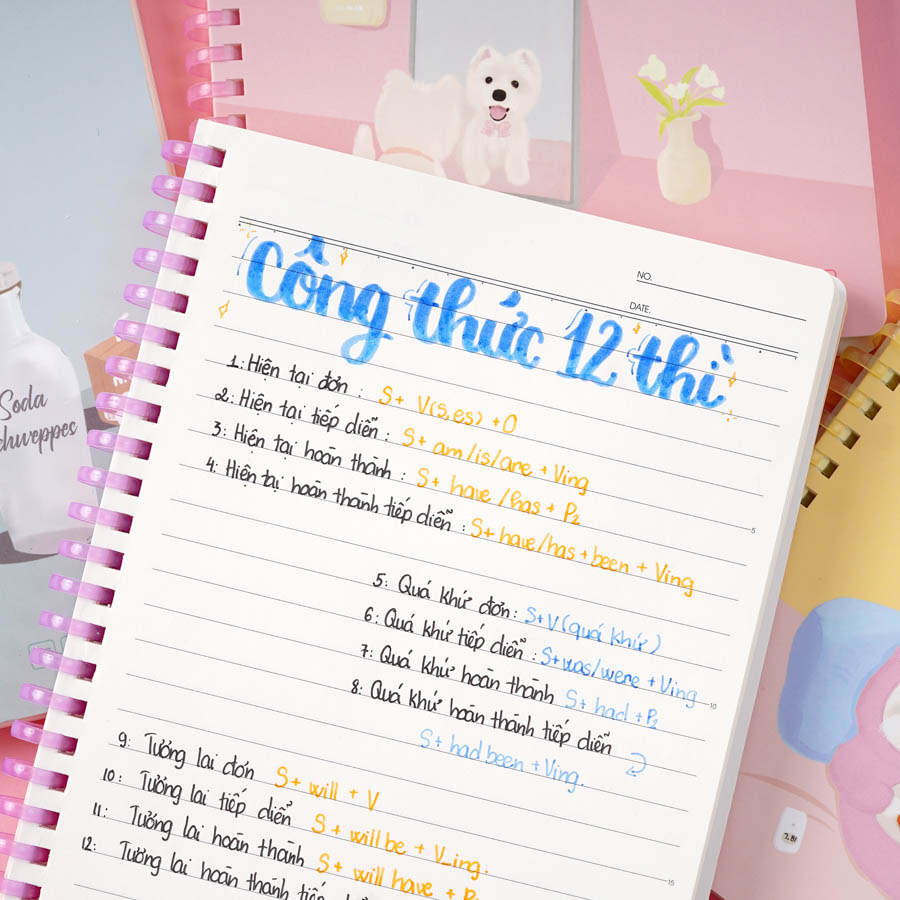 NO.
DATE.
Công thức 12 thì
1: Hiện tại đơn : S+ V(s,es) + O
2: Hiện tại tiếp diễn : S + am/is/are + Ving
3: Hiện tại hoàn thành : S + have/has + P2
4: Hiện tại hoàn thành tiếp diễn : S+ have/has + been + Ving
5
5: Quá khứ đơn: S+V(quá khứ)
6: Quá khứ tiếp diễn : S+was/were + Ving
7: Quá khứ hoàn thành S + had + P2
10
8: Quá khứ hoàn thành tiếp diễn
S+ had been + Ving.
9: Tương lai đơn S+ will + V
10: Tương lai tiếp diển S + will be + V_ing.
11: Tương lai hoàn thành S+ will have +
15
12: Tương lai hoàn thành tiếp
Soda